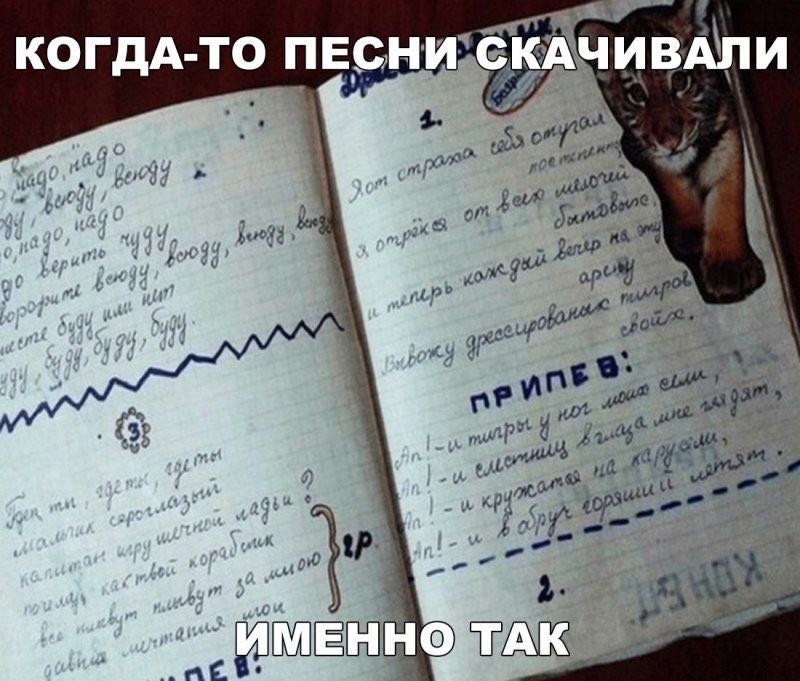 КОГДА-ТО ПЕСНИ СКАЧИВАЛИ
надо, надо
всюду, всюду
надо, надо
верить чуду
всюду, всюду, всюду, всюду
буду или нет
буду, буду, буду.
3
где ты, где ты
мальчик сероглазый
капитан игрушечной ладьи?
как твой кораблик
всё плывут плывут за мною
давние мечтания мои
2р.
ПРИПЕВ:
1.
Я от страха себя отучал
постепенно,
я отрёкся от всех мелочей
бытовых,
и теперь каждый вечер на эту
арену
Вывожу дрессированных тигров
своих.
ПРИПЕВ:
Ап!-и тигры у ног моих сели,
Ап!-и с лестниц в глаза мне глядят,
Ап!-и кружатся на карусели,
Ап!-и в обруч горящий летят.
2.
ИМЕННО ТАК